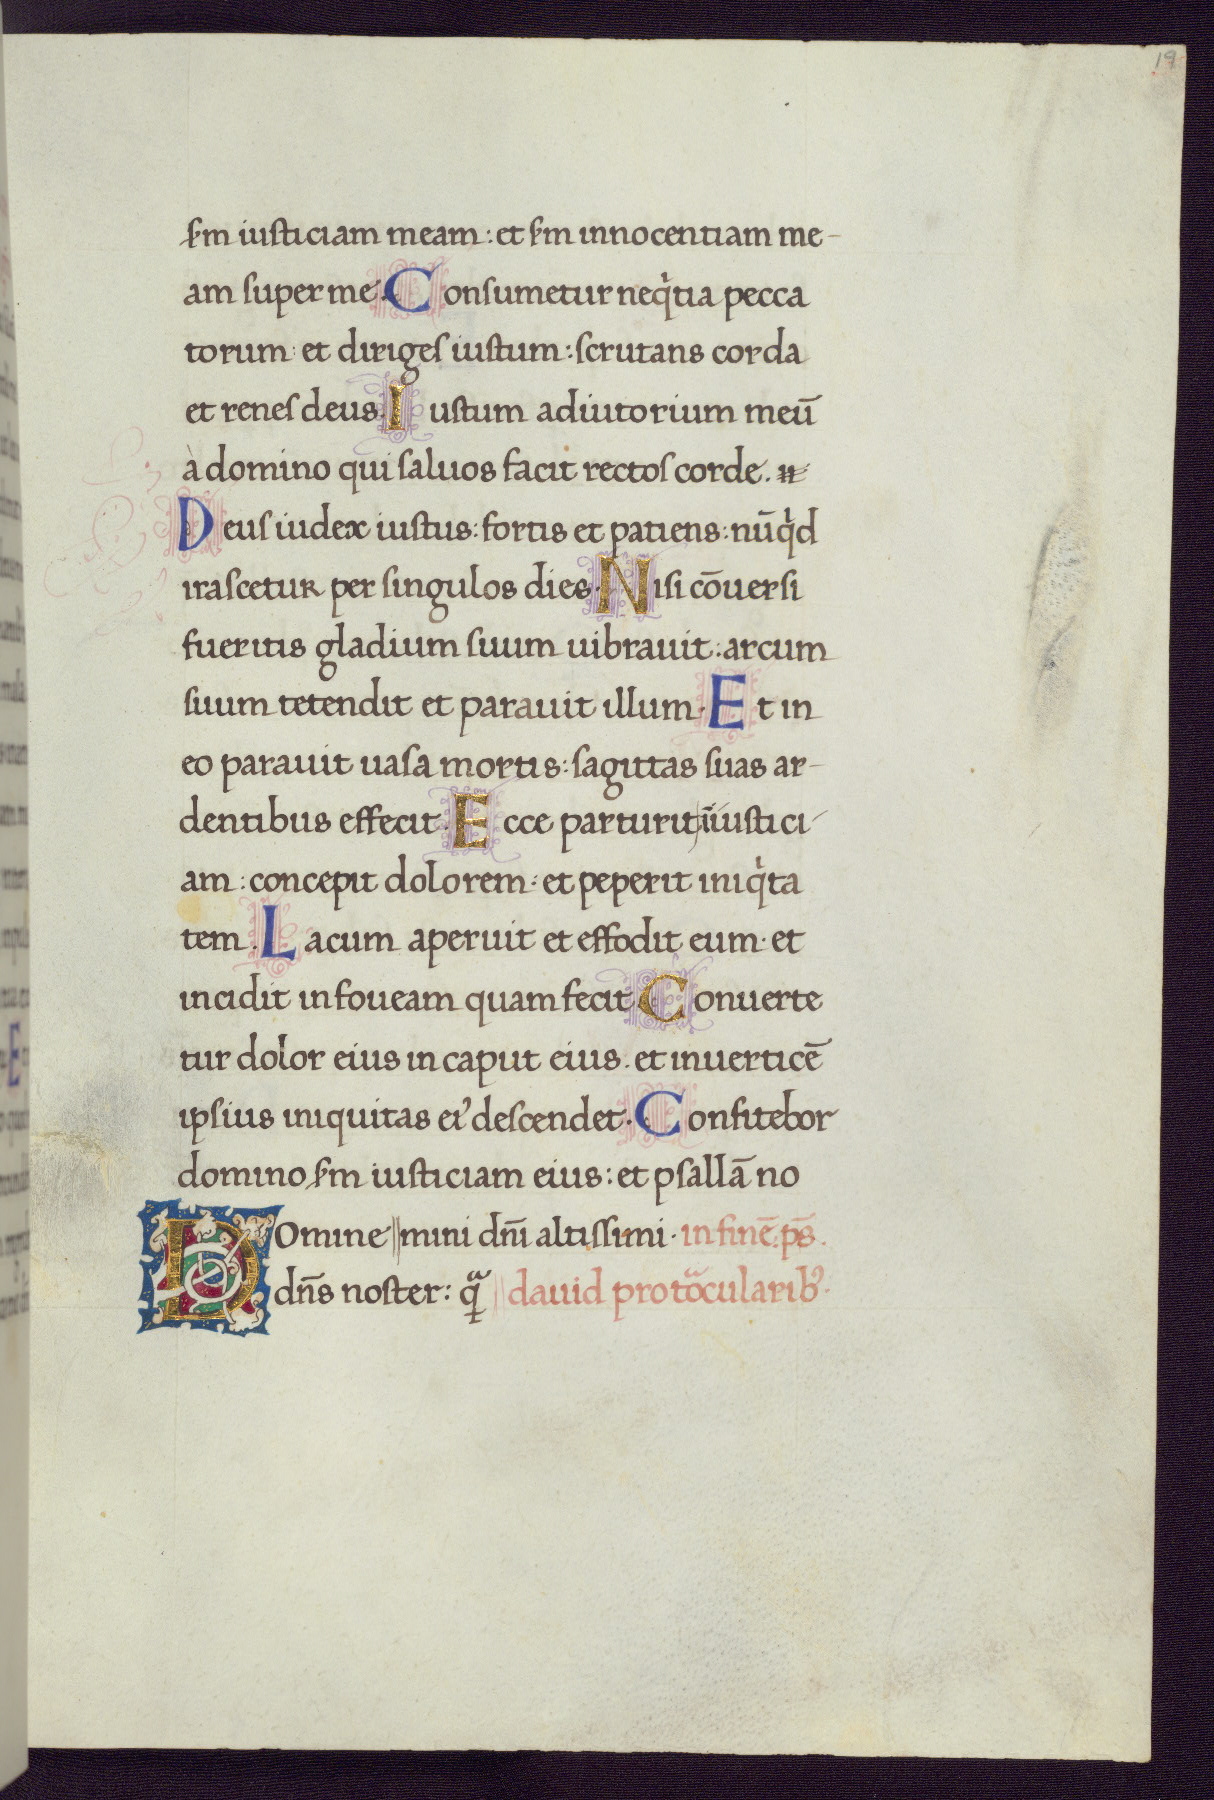 19
s̄cm iusticiam meam: et s̄cm innocentiam me-
am super me. Consumetur neq̍tia pecca
torum: et diriges iustum: scrutans corda
et renes deus. Iustum adiutorium meū
à domino qui saluos facit rectos corde.
Deus iudex iustus: fortis et patiens: nūq̍d
irascetur per singulos dies. Nisi cōuersi
fueritis gladium suum uibrauit: arcum
suum tetendit et parauit illum. Et in
eo parauit uasa mortis: sagittas suas ar-
dentibus effecit. Ecce parturit īiustici
am: concepit dolorem: et peperit iniq̍ta
tem. Lacum aperuit et effodit eum. et
incidit in foueam quam fecit. Conuerte
tur dolor eius in caput eius. et in uerticē
ipsius iniquitas ei᾽ descendet. Confitebor
domino s̄cm iusticiam eius: et psallā no
Domine mini dn̄i altissimi. in finē. ps̄.
dn̄s noster: qᷓ dauid pro toᷓcularib᾽.